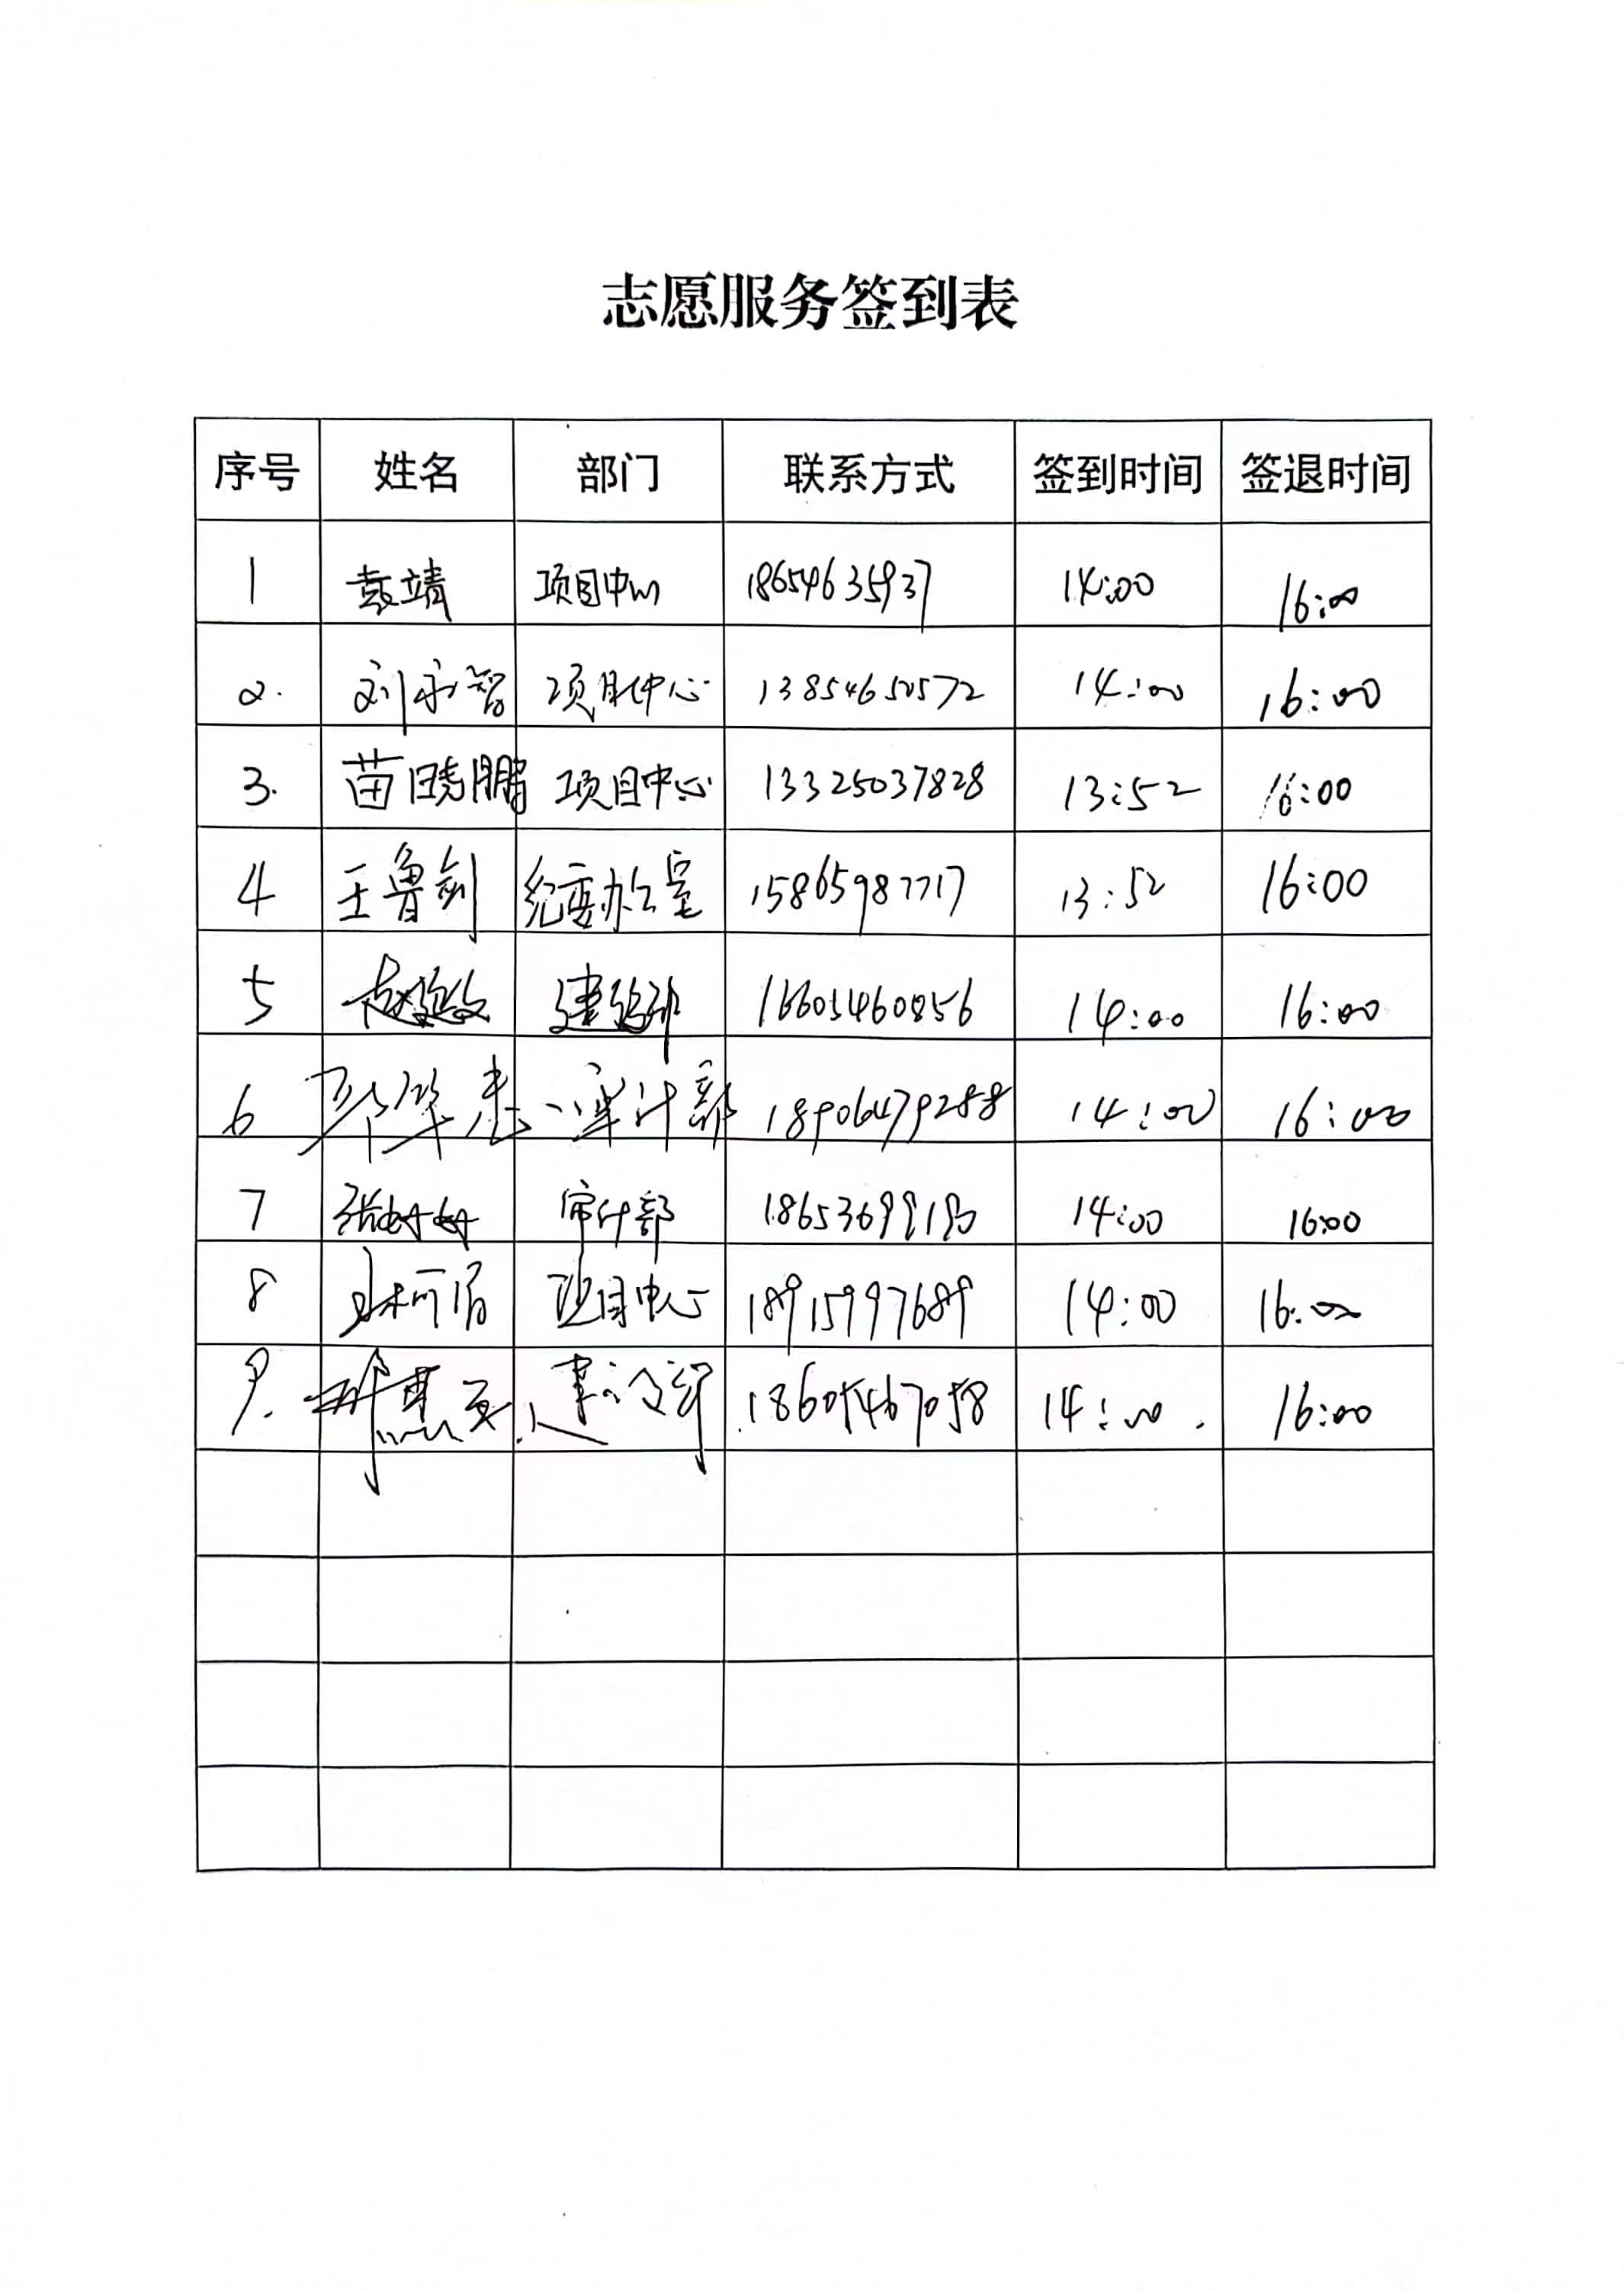 志愿服务签到表
序号 姓名 部门 联系方式 签到时间 签退时间
1 袁靖 项目中心 18654635937 14:00 16:00
2. 刘永智 项目中心 13854650572 14:00 16:00
3. 苗晓鹏 项目中心 13325037828 13:52 16:00
4 王鲁剑 纪委办公室 15865987717 13:52 16:00
5 14:00 16:00
6 审计部 18906479288 14:00 16:00
7 张好好 审计部 14:00 16:00
8 项目中心 18915997689 14:00 16:00
9. 18605467058 14:00 16:00